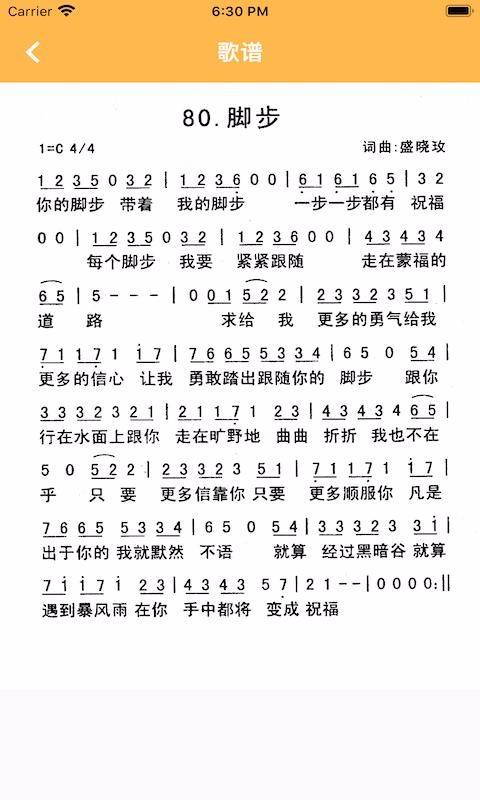 Carrier 6:30 PM
歌谱
80.脚步
1=C 4/4 词曲:盛晓玫
1 2 3 5 0 3 2 | 1 2 3 6 0 0 | 6 1 6 1 6 5 | 3 2
你的脚步 带着 我的脚步 一步一步都有 祝福
0 0 | 1 2 3 5 0 3 2 | 1 2 3 6 0 0 | 4 3 4 3 4
每个脚步 我要 紧紧跟随 走在蒙福的
6 5 | 5 - - - | 0 0 1 5 2 2 | 2 3 3 2 3 5 1 |
道 路 求给 我 更多的勇气给我
7 1 1 7 1 1 7 | 7 6 6 5 5 3 3 4 | 6 5 0 5 4 |
更多的信心 让我 勇敢踏出跟随你的 脚步 跟你
3 3 3 2 3 2 1 | 2 1 1 7 1 2 3 | 4 3 4 3 4 6 5 |
行在水面上跟你 走在旷野地 曲曲 折折 我也不在
5 0 5 2 2 | 2 3 3 2 3 5 1 | 7 1 1 7 1 1 7 |
乎 只 要 更多信靠你 只要 更多顺服你 凡是
7 6 6 5 5 3 3 4 | 6 5 0 5 4 | 3 3 3 2 3 3 1 |
出于你的 我就默然 不语 就算 经过黑暗谷 就算
7 1 1 7 1 2 3 | 4 3 4 3 5 7 | 2 1 - - | 0 0 0 0 :||
遇到暴风雨 在你 手中都将 变成 祝福